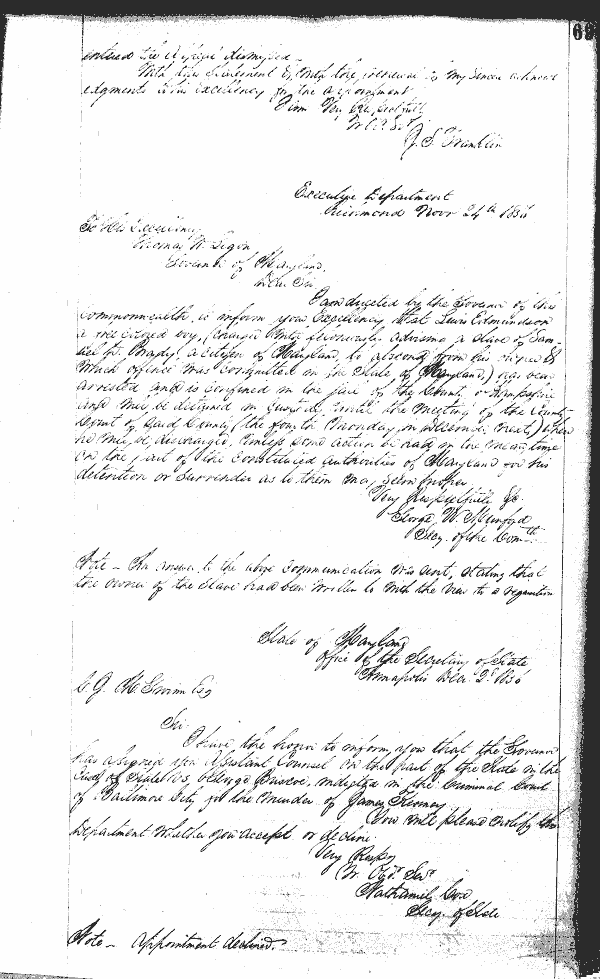 69
entered the appeal dismissed.
With this statement & with the renewal of my sincere acknowl
edgments to his excellency for the appointment
I am Very Respectfully
Yr Ob. Svt
J. S. Franklin
Executive Department
Richmond Novr 24th 1856
To His Excellency
Thomas W. Ligon
Governor of Maryland,
Dear Sir
I am directed by the Governor of this
Commonwealth, to inform your Excellency that Lewis Edmundson
a free colored boy, (charged with feloniously advising a slave of Sam-
uel A. Brady, a citizen of Maryland, to abscond from his owner &
which offence was committed in the State of Maryland,) has been
arrested and is confined in the jail of the County of Hampshire
and may be detained in custody, until the meeting of the County
Court of said County (the fourth Monday in December next,) when
he may be discharged, unless some action be had in the mean time
on the part of the constituted authorities of Maryland for his
detention or surrender as to them may seem proper.
Very Respectfully &c.
George W. Munford
Secy. of the Comth
Note – An answer to the above communication was sent, stating that
the owner of the slave had been written to with the view to a requisition
State of Maryland
Office of the Secretary of State
Annapolis Decr 2d 1856
Esq
Sir
I have the honor to inform you that the Governor
has assigned you Assistant Counsel on the part of the State in the
Case of State vs. George Briscoe, indicted in the Criminal Court
of Baltimore City for the murder of James
You will please notify this
Department whether you accept or decline.
Very Respy
Yr. Obdt. Servt
Nathaniel Cox
Secy. of State
Note – Appointment declined.